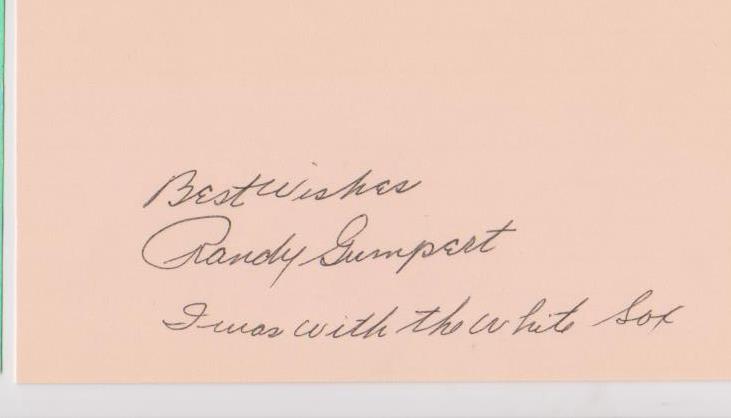 Best Wishes
Randy Gumpert
I was with the White Sox